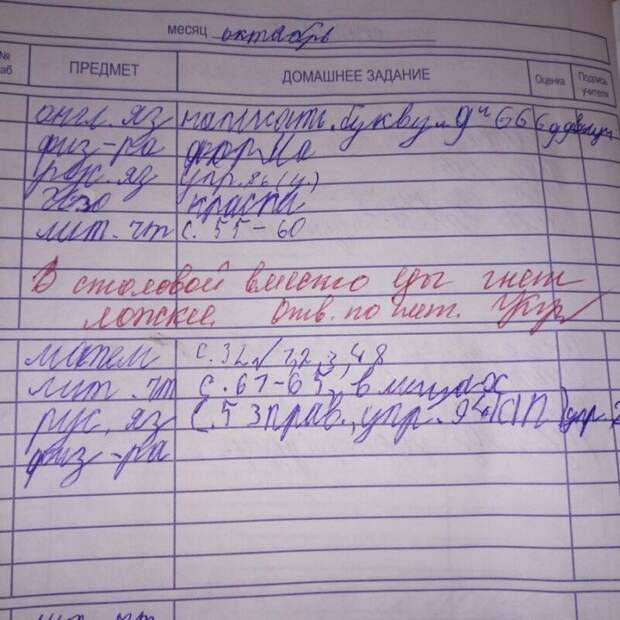 месяц октябрь
№ ПРЕДМЕТ ДОМАШНЕЕ ЗАДАНИЕ Оценка Подпись учителя
англ. яз написать букву
физ-ра форма
рус. яз упр. 86 (у)
Изо краски
лит. чт с. 55-60
В столовой вместо еды гнет
ложки. Отв. по пит.
матем с. 32
лит. чт с. 61-65, в лицах
рус. яз с. 53 прав., упр. 94
физ-ра
лит. чт